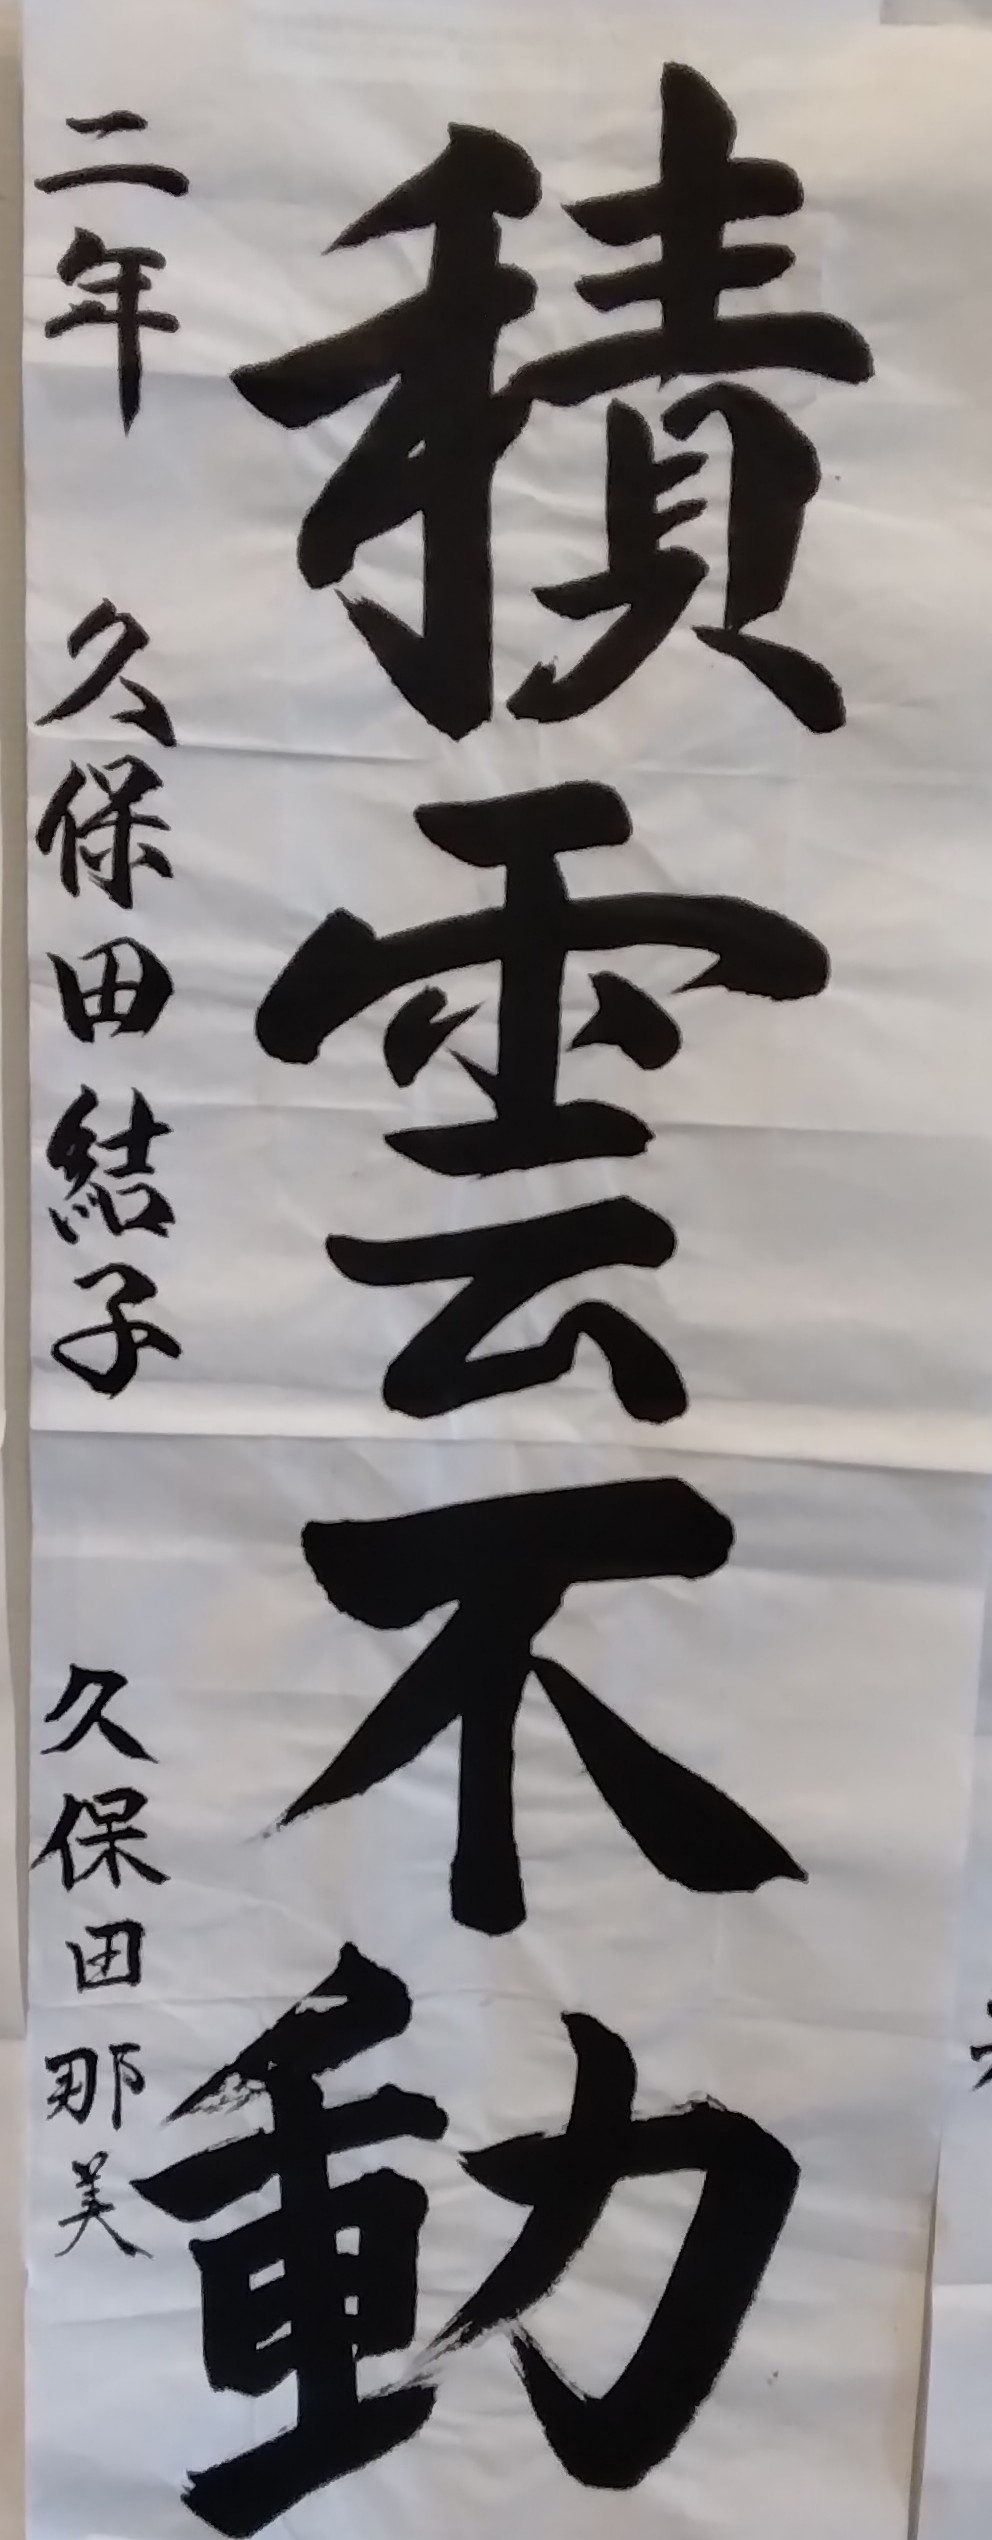 積雲不動
二年 久保田結子 久保田那美